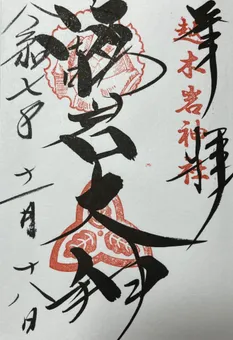 奉拝
越木岩神社
甑岩大神
令和七年 十一月 十八日